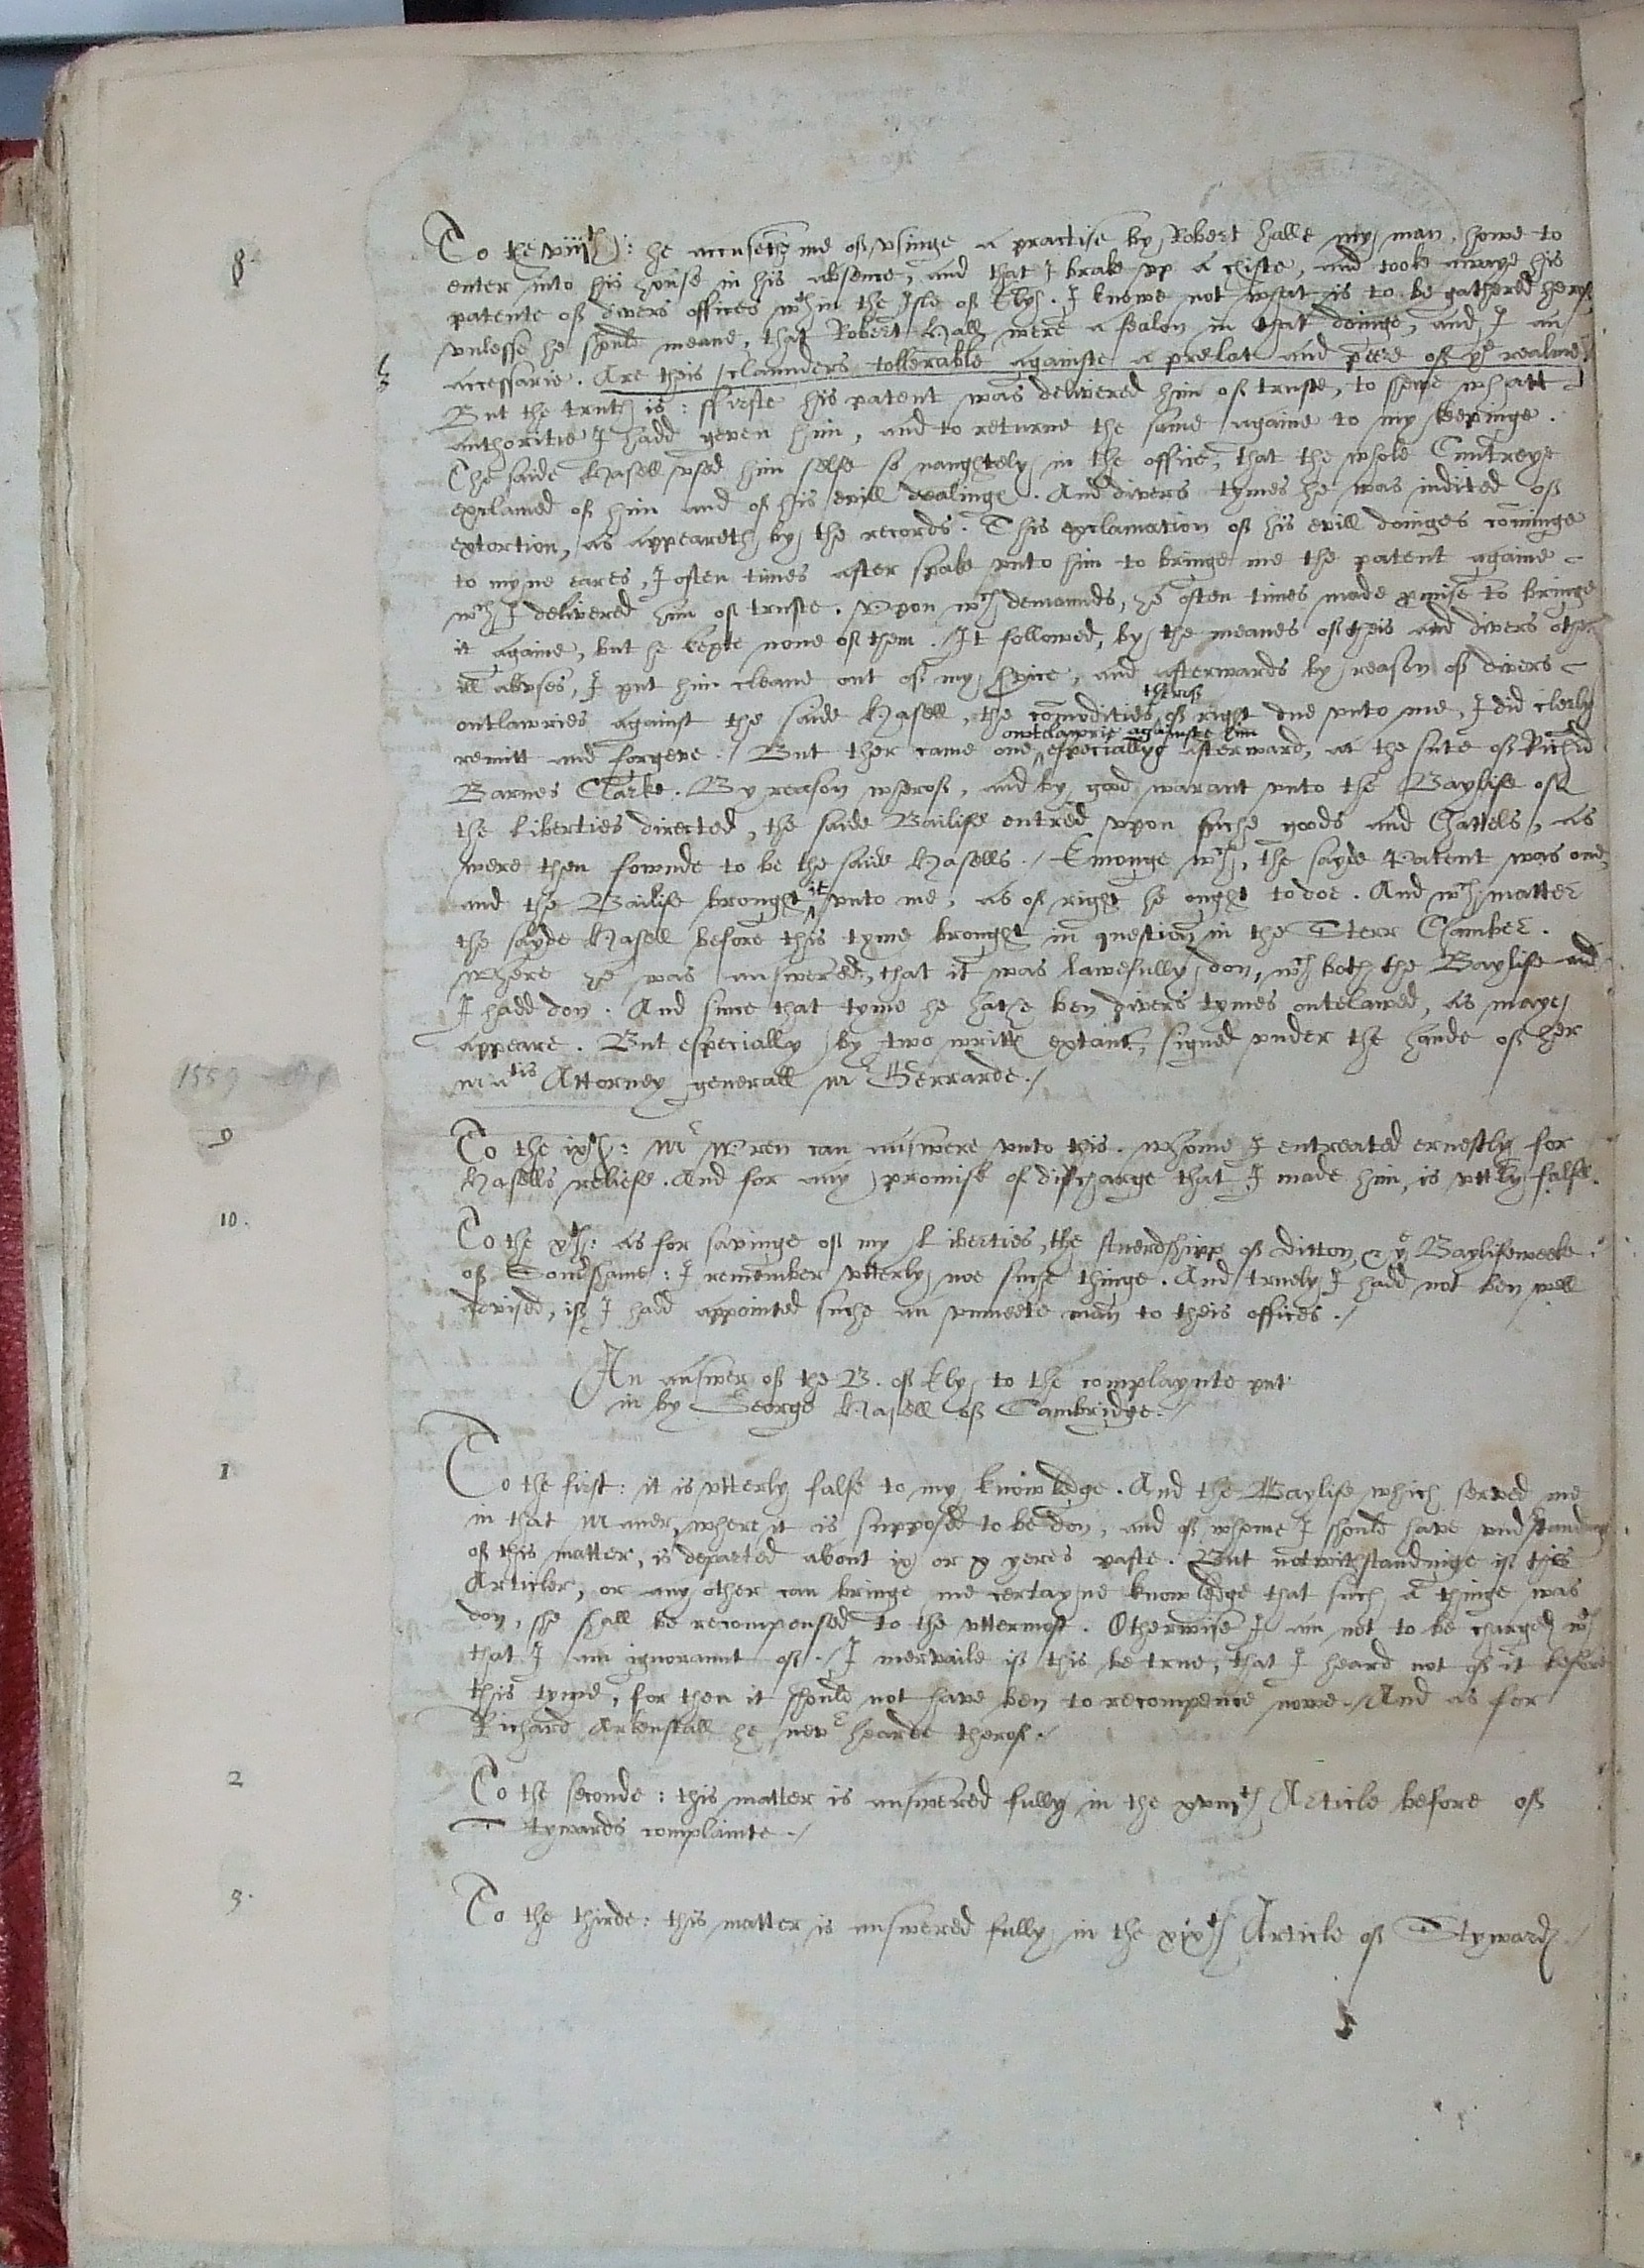 8.
To the viijth: he accusethe me of usinge a practise by Robert Halle my man, howe to
enter into his house in his absence, and that I brake up a chiste, and tooke awaye his
patente of divers offices wthin the Isle of Elye. I knowe not what is to be gathered herof
unlesse he should meane, that Robert Hall were a fealon in that doinge, and I an
accessarie. Are theis sclaunders tollerable againste a prelat and peere of ye realme?
But the truth is: ffirste his patent was delivered him of truste, to shewe whatt
authoritie I hadd geven him, and to returne the same againe to my keepinge.
The saide Hasell used him selfe so naughtely in the office, that the whole Cuntreye
exclamed of him and of his evill dealinge. And divers tymes he was indited of
extortion, as appeareth by the records. This exclamation of his evill doinges cominge
to myne eares, I often times after spake unto him to bringe me the patent againe
wch I delivered him of truste. Upon wch demaunds, he often times made promise to bringe
it againe, but he kepte none of them. It followed, by the meanes of theis and divers other
ill abuses, I put him cleane out of my service, and afterwards by reason of divers
outlawries against the saide Hasell, the comodities therof of right due unto me, I did clerly
remitt and forgeve. / But ther came one outelawrie againste him especially afterward, at the sute of Richard
Barnes Clarke. By reason wherof, and by good warant unto the Baylife of
the Liberties directed, the saide Bailife entred upon suche goods and Chattels, as
were then fownde to be the saide Hasells. / Emonge wch, the sayde Patent was one,
and the Bailife brought it unto me, as of right he ought to doe. And wch matter
the sayde Hasell before this tyme brought in question in the Sterr Chamber.
Where he was answered, that it was lawefully don, wch both the Baylife and
I hadd don. And since that tyme he hathe ben divers tymes outelawed, as maye
appeare. But especially by two writts extant, signed under the hande of her
Matis Attorney generall Mr Gerrarde. /
1559
9
To the ixth: Mr Wren can answere unto this. Whome I entreated ernestly for
Hasells reliefe. And for any promise of discharge that I made him, is utterly false.
10.
To the xth: as for savinge of my Liberties, the stuerdshipp of Ditton, & ye Baylifeweeke
of Somershame: I remember utterly noe suche thinge. And truely I hadd not ben well
advised, if I hadd appointed suche an unmeete man to theis offices. /
An answer of the B. of Ely to the complaynte put
in by George Hasell of Cambridge. /
1
To the first: it is utterly false to my knowledge. And the Baylife which served me
in that Maner, where it is supposed to be don, and of whome I should have understanding
of this matter, is departed about ix or x yeres paste. But notwithstandinge if this
Articler, or any other can bringe me certayne knowledge that such a thinge was
don, she shall be recompensed to the uttermost. Otherwise I am not to be charged wth
that I am ignoraunt of. / I mervaile if this be true, that I heard not of it before
this tyme, for then it should not have ben to recompence nowe. / And as for
Richard Arkenstall he never hearde therof. /
2
To the seconde: this matter is answered fully in the xviijth Article before of
Stywards complainte. /
3.
To the thirde: this matter is answered fully in the xixth Article of Stywards. /